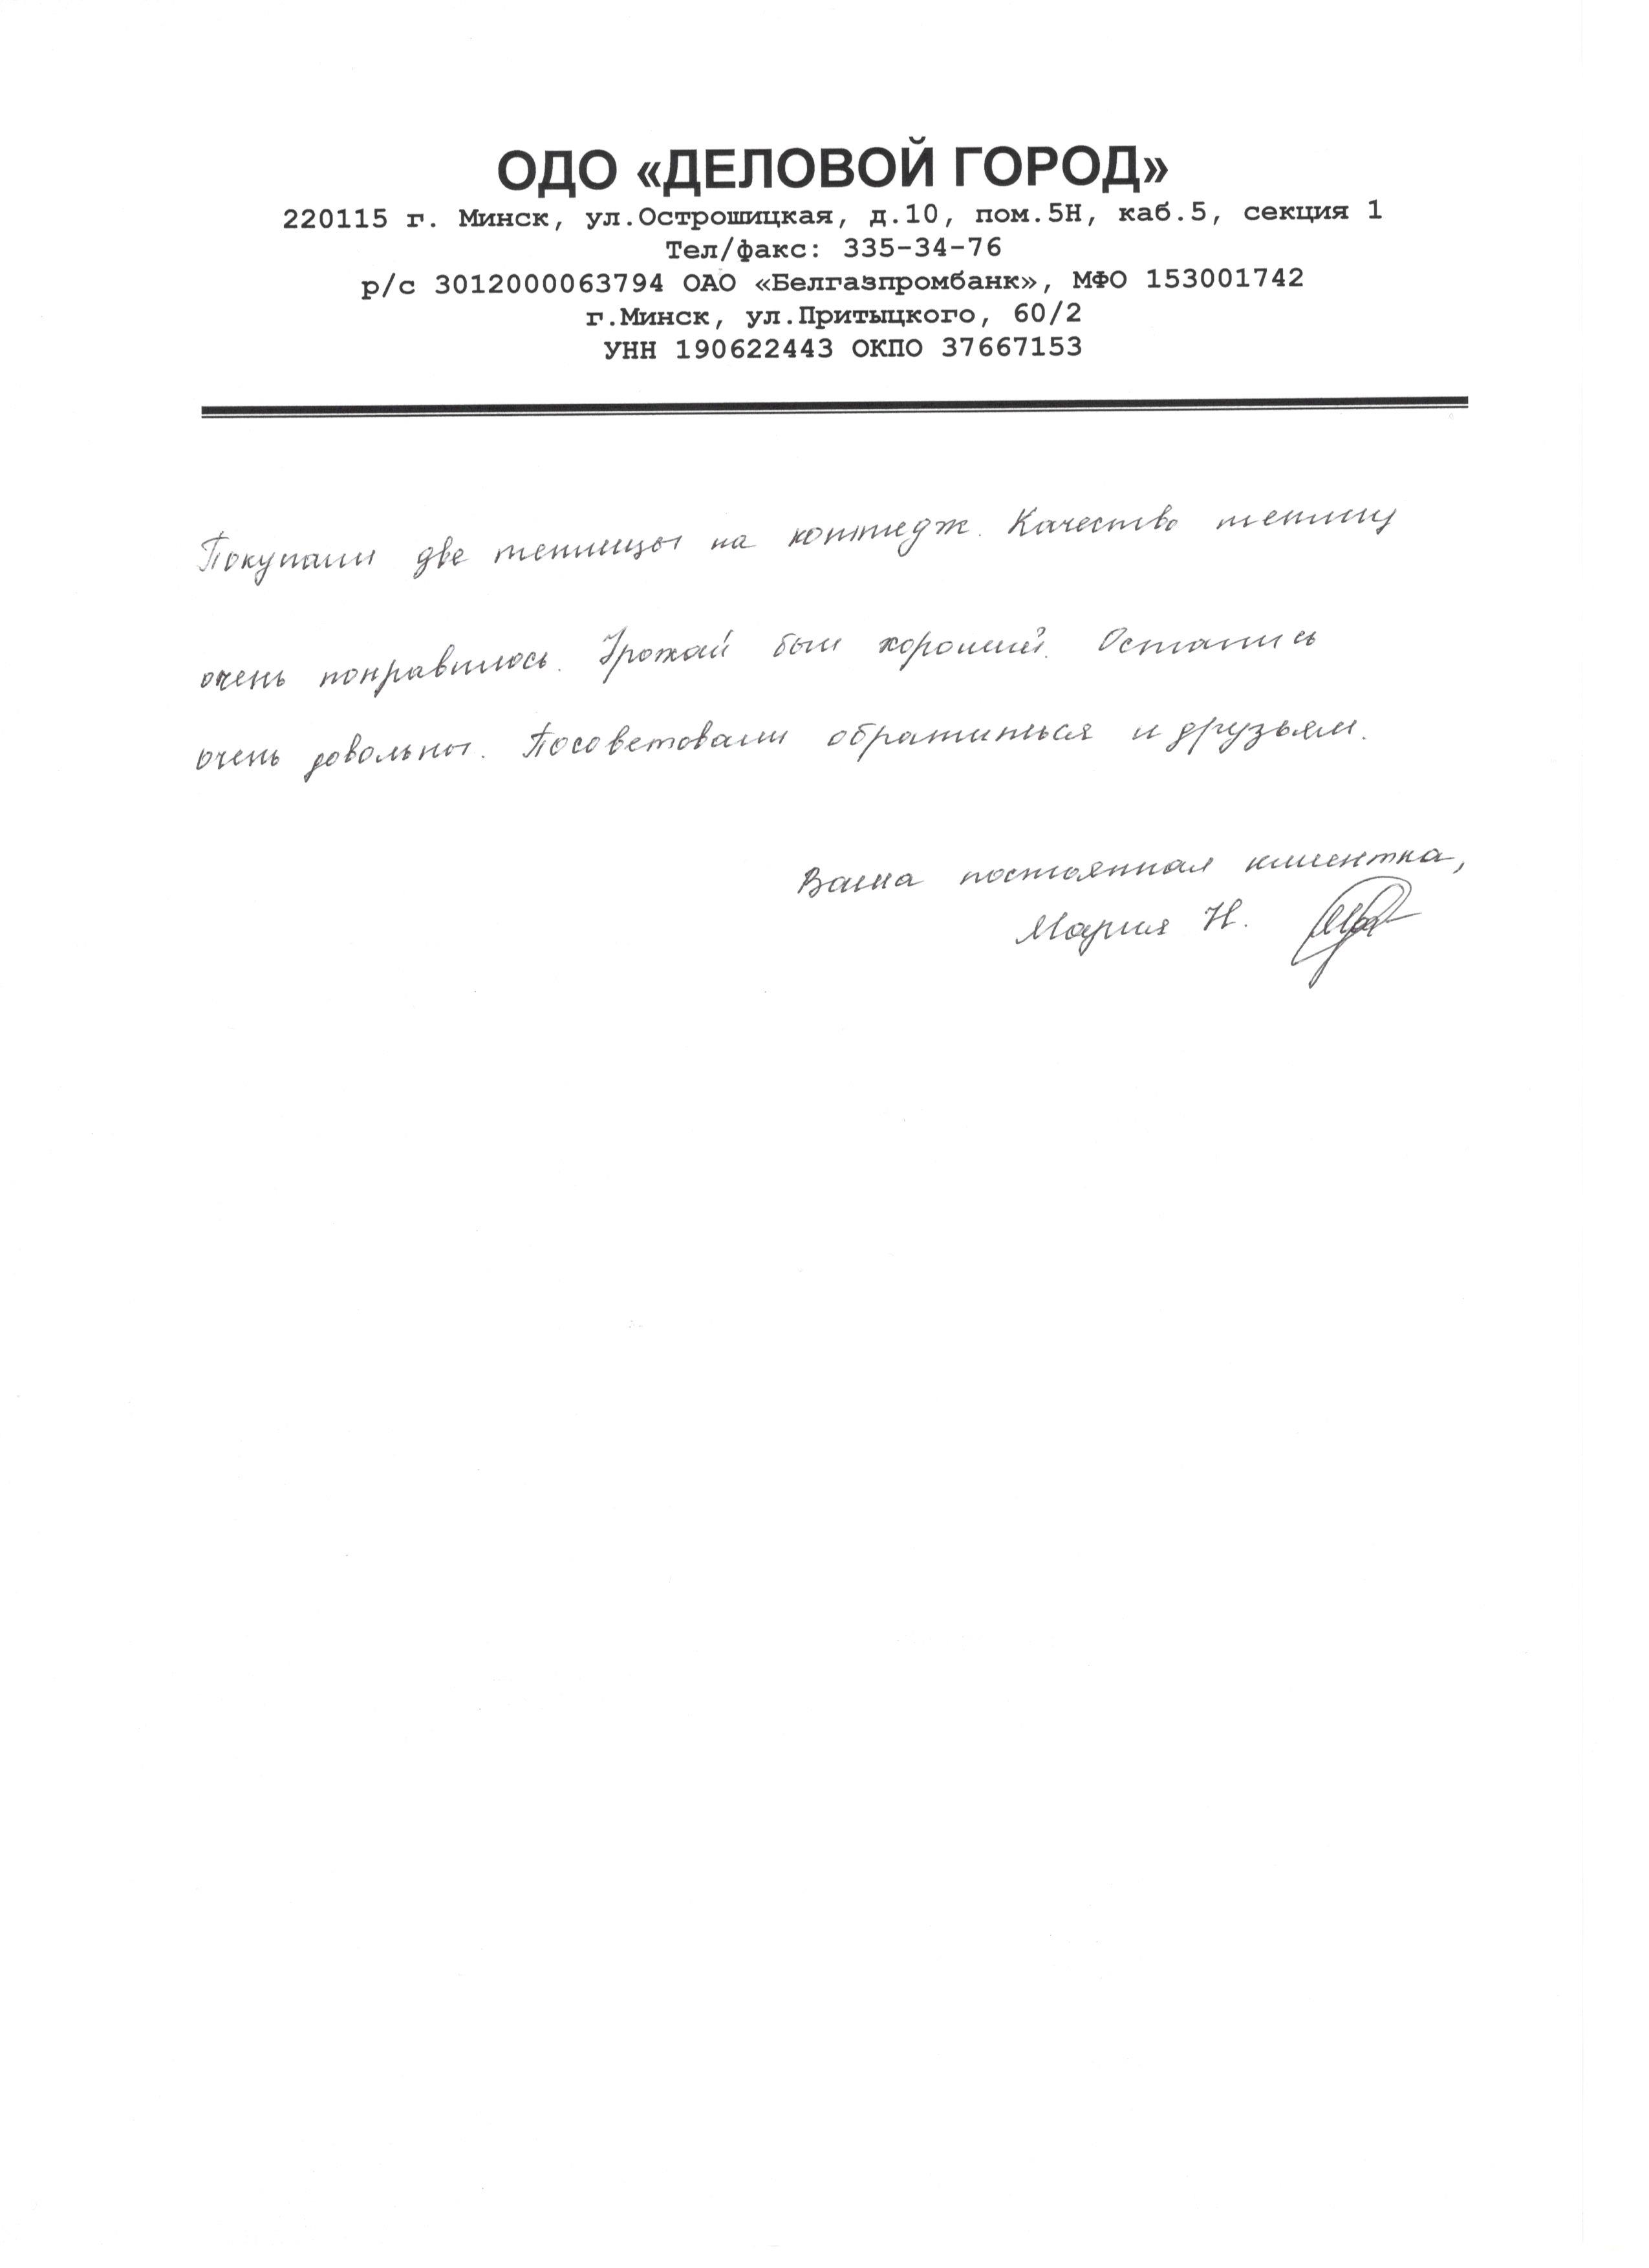 ОДО «ДЕЛОВОЙ ГОРОД»
220115 г. Минск, ул.Острошицкая, д.10, пом.5Н, каб.5, секция 1
Тел/факс: 335-34-76
р/с 3012000063794 ОАО «Белгазпромбанк», МФО 153001742
г.Минск, ул.Притыцкого, 60/2
УНН 190622443 ОКПО 37667153
Покупали две теплицы на коттедж. Качество теплиц
очень понравилось. Урожай был хороший. Остались
очень довольны. Посоветовали обратиться и друзьям.
Ваша постоянная клиентка,
Мария Н.